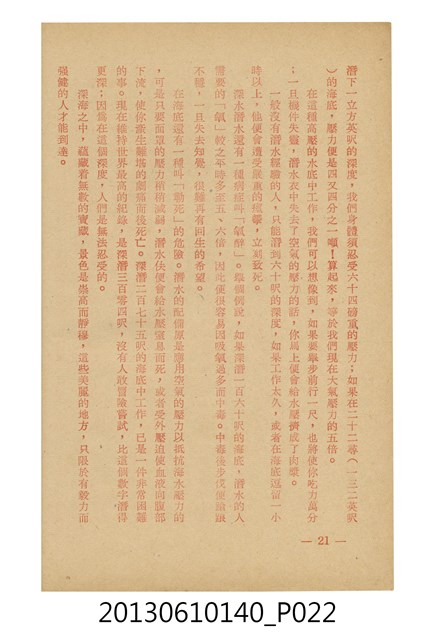 潛下一立方英呎的深度，我們身體須忍受六十四磅重的壓力；如果在二十二尋（一三二英呎
）的海底，壓力便是四又四分之一噸！算起來，等於我們現在大氣壓力的五倍。
在這種高壓的水底中工作，我們可以想像到，如果要舉步前行一尺，也將使你吃力萬分
；一旦機件失靈，潛水衣中失去了空氣的壓力的話，你馬上便會給水壓擠成了肉醬。
一般沒有潛水經驗的人，只能潛到六十呎的深度，如果工作太久，或者在海底逗留一小
時以上，他便會遭受嚴重的痙攣，立刻致死。
深水潛水還有一種病症叫「氧醉」。舉個例說，如果深潛一百六十呎的海底，潛水的人
需要的「氧」較之平時多至五、六倍，因此便很容易因吸氧過多而中毒。中毒後步伐便踉蹌
不穩，一旦失去知覺，很難再有回生的希望。
在海底還有一種叫「勒死」的危險。潛水的配備原是應用空氣的壓力以抵抗海水壓力的
，可是只要面罩的壓力稍稍減弱，潛水伕便會給水壓窒息而死，或者受外壓迫使血液向腹部
下流，使你產生難堪的劇痛而後死亡。深潛二百七十五呎的海底中工作，已是一件非常困難
的事。現在維持世界最高的紀錄，是深潛三百零四呎，沒有人敢冒險嘗試，比這個數字潛得
更深；因為在這個深度，人們是無法忍受的。
深海之中，蘊藏着無數的寶藏，景色是崇高而靜穆，這些美麗的地方，只限於有毅力而
强健的人才能到達。
— 21 —
20130610140_P022